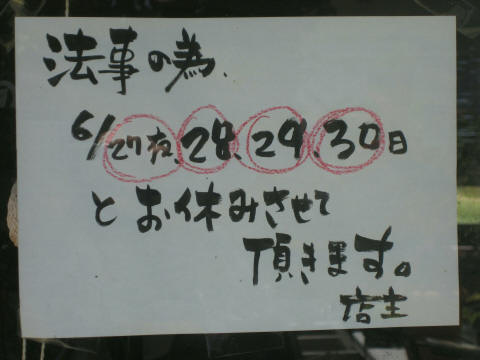 法事の為、
6/27夜、28、29、30日
とお休みさせて
頂きます。
店主